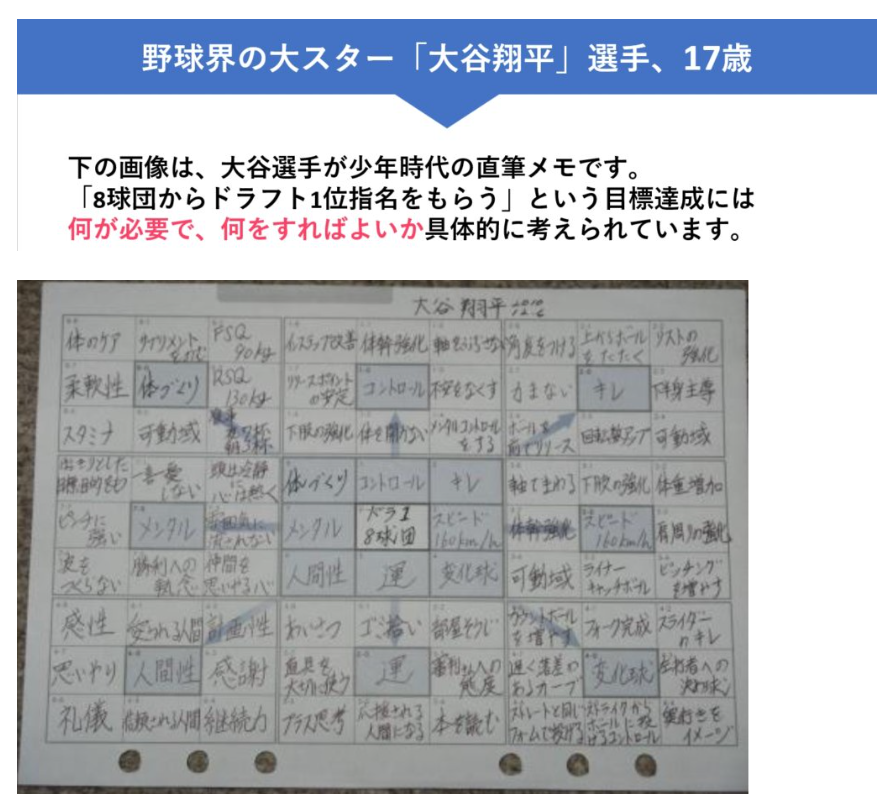 野球界の大スター「大谷翔平」選手、17歳
下の画像は、大谷選手が少年時代の直筆メモです。
「8球団からドラフト1位指名をもらう」という目標達成には
何が必要で、何をすればよいか具体的に考えられています。
大谷 翔平
体のケア サプリメントをのむ FSQ 90kg インステップ改善 体幹強化 軸をぶらさない 角度をつける 上からボールをたたく リストの強化
柔軟性 体づくり RSQ 130kg リリースポイントの安定 コントロール 不安をなくす 力まない キレ 下半身主導
スタミナ 可動域 食事 夜7杯 朝3杯 下肢の強化 体を開かない メンタルコントロールをする ボールを前でリリース 回転数アップ 可動域
はっきりとした目標、目的をもつ 一喜一憂しない 頭は冷静に心は熱く 体づくり コントロール キレ 軸でまわる 下肢の強化 体重増加
ピンチに強い メンタル 雰囲気に流されない メンタル ドラ1 8球団 スピード 160km/h 体幹強化 スピード 160km/h 肩周りの強化
波をつくらない 勝利への執念 仲間を思いやる心 人間性 運 変化球 可動域 ライナーキャッチボール ピッチングを増やす
感性 愛される人間 計画性 あいさつ ゴミ拾い 部屋そうじ カウントボールを増やす フォーク完成 スライダーのキレ
思いやり 人間性 感謝 道具を大切に使う 運 審判さんへの態度 遅く落差のあるカーブ 変化球 左打者への決め球
礼儀 信頼される人間 継続力 プラス思考 応援される人間になる 本を読む ストレートと同じフォームで投げる ストライクからボールに投げるコントロール 奥行きをイメージ